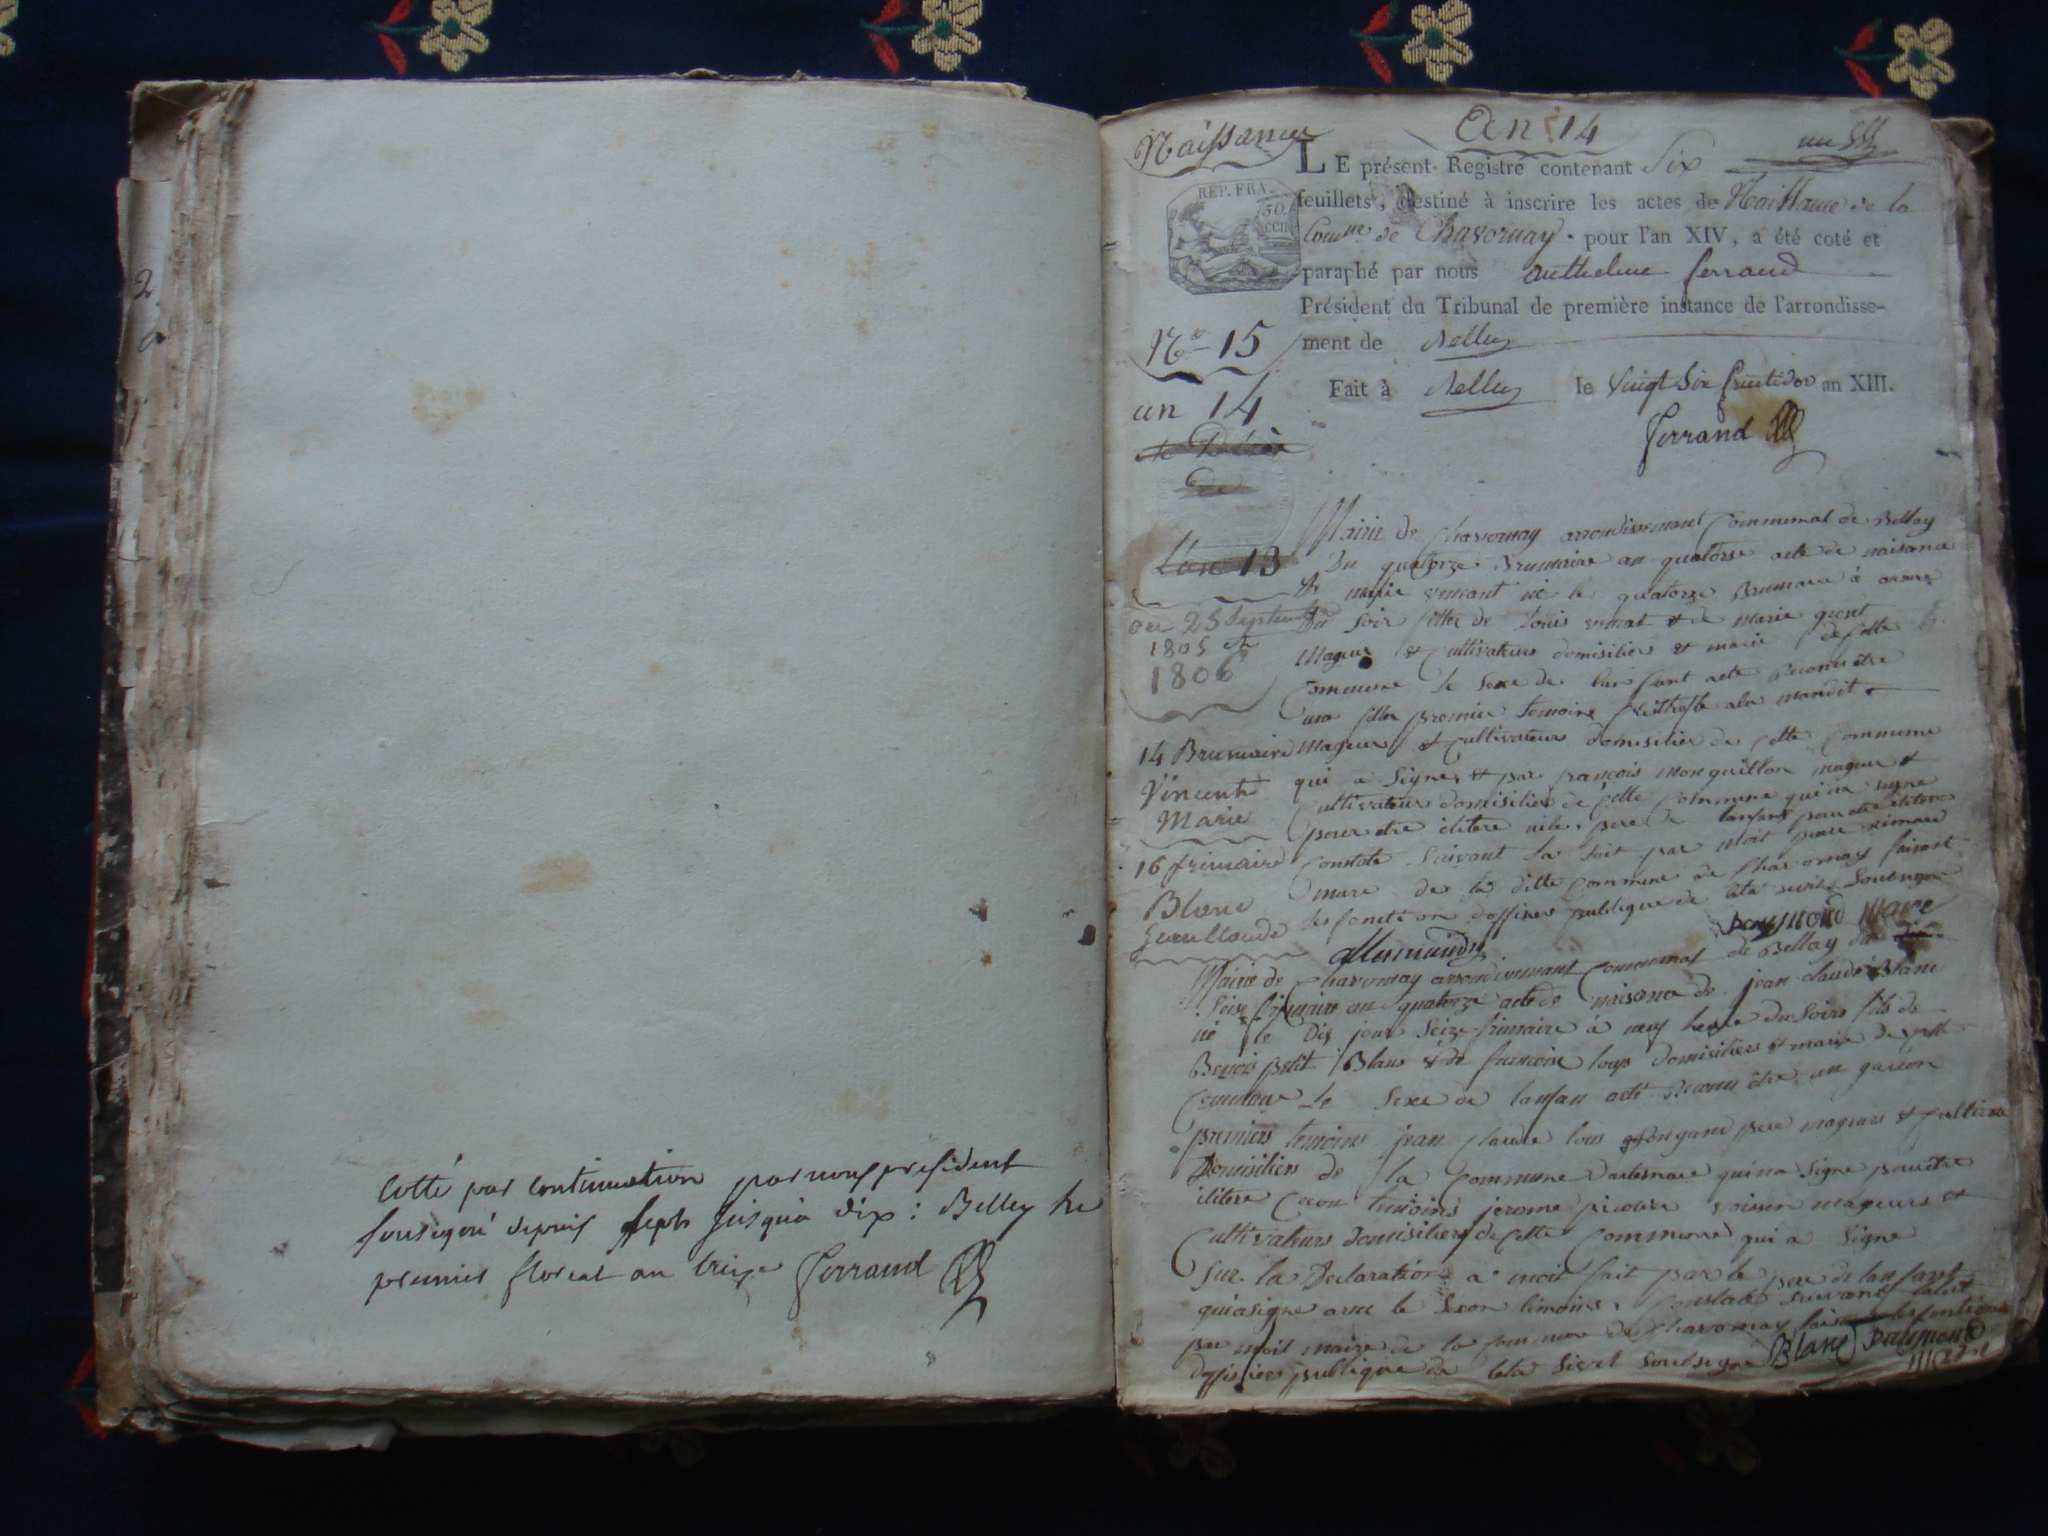 cotté par continuation par nous president
sousigné depuis sept jusqu'a dix : Belley le
premier floreal an treize Ferrand
Naissance
An 14
LE présent Registre contenant Six
feuillets, destiné à inscrire les actes de Naissance de la
Comne de Chavornay pour l'an XIV, a été coté et
paraphé par nous anthelme ferrand
Président du Tribunal de première instance de l'arrondisse-
ment de Belley
Fait à Belley le Vingt Six fructidor an XIII.
Ferrand
REP. FRA.
50 cen
No 15
an 14
L'an 13
ou 23 Septembre
1805 et
1806
14 Brumaire
Vincent
Marie
16 frimaire
Blanc
Jean Claude
Mairie de Chavornay arrondissement Communal de Bellay
Du quatorze Brumaire an quatorse acte de naisance
de marie vincent né le quatorze Brumaire à onze
du soir fille de Louis vincent et de Marie
Mageur et Cultivateurs domisiliés et marié de cette
Commune le Sexe de lanfant acte reconu être
une fille premier temoins
Mageur et Cultivateur domisilier de cette Commune
qui a Signe, et par françois Monguillon mageur et
Cultivateur domisilier de cette Commune qui na signe
pour etre iletere pere de lanfant pour etre iletere
Constaté Suivant la loit par moit
maire de la ditte Commune de Chavornay faisant
les fonction doffisier publique de leta sivil Sousigne
allemand Reymond Maire
Mairie de Chavornay arrondissement Communal de Bellay du
Seise frimaire an quatorze acte de naisance de jean claude Blanc
né le Dis jour Seize frimaire à neuf heure du Soir fils de
Benois petit Blanc et de françoise loup domisiliers et marié de cette
Commune Le Sexe de lanfan acte reconu être un garcon
premiers temoins jean Claude loup pere mageurs et cultiva
Domisiliers de la Commune qui na signe pour être
iletere Secon temoins jerome voisin mageurs et
Cultivateurs domisiliers de Cette Commune qui a Signe
Sur la Declaration a moit fait par le pere de lanfant
qui a signe avec le Secon temoins. Constaté Suivant laloit
par moit maire de la Commune de Chavornay faisant les fontions
doffisiers publique de leta Sivil Soubsigne Blanc Reymond
Maire